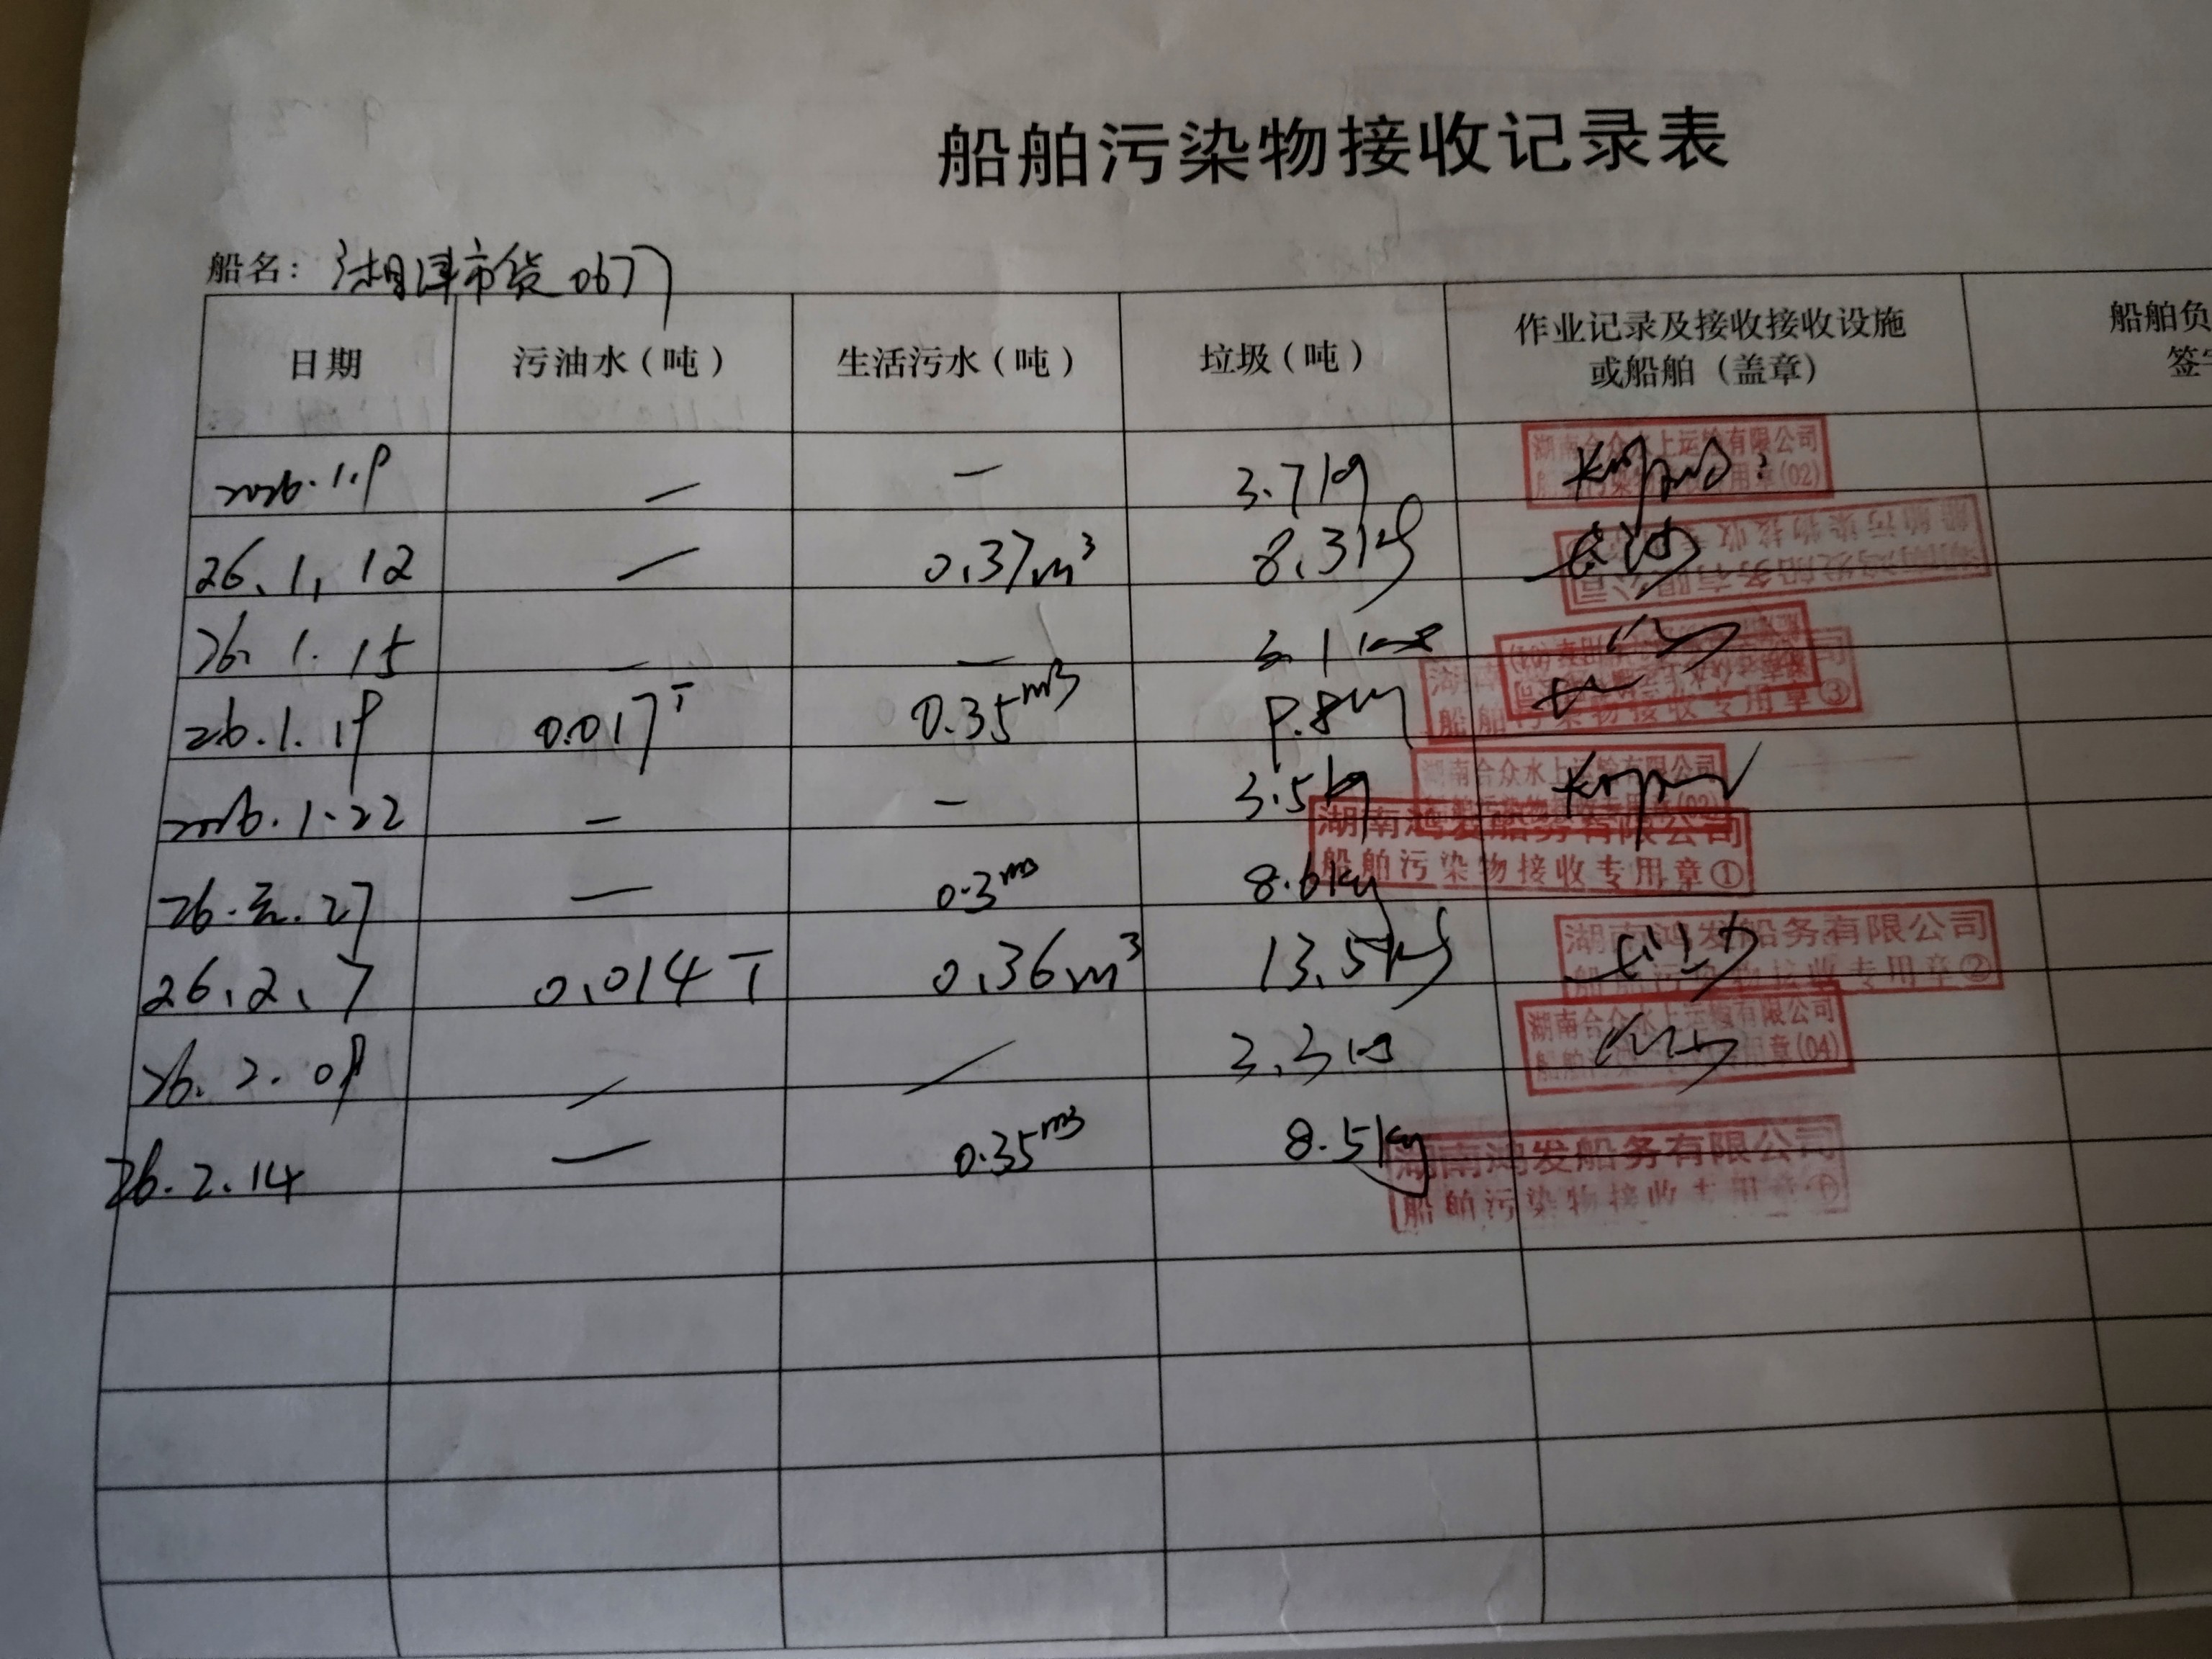 船舶污染物接收记录表
船名：湘津市货0677
日期 污油水（吨） 生活污水（吨） 垃圾（吨） 作业记录及接收接收设施或船舶（盖章） 船舶负 签字
2026.1.9 — — 3.7kg 湖南合众水上运输有限公司 船舶污染物接收专用章(02)
26.1.12 — 0.37m³ 8.3kg 长沙 湖南鸿发船务有限公司 船舶污染物接收专
26.1.15 — — 3.1kg
26.1.19 0.017T 0.35m3 9.8kg 船舶污染物接收专用章③
2026.1.22 — — 3.5kg 湖南合众水上运输有限公司
26.元.27 — 0.3m3 8.6kg 湖南鸿发船务有限公司 船舶污染物接收专用章①
26.2.7 0.014T 0.36m³ 13.5kg 长沙 湖南鸿发船务有限公司 船舶污染物接收专用章②
26.2.09 — — 3.3kg 湖南合众水上运输有限公司 船舶污染物接收专用章(04)
26.2.14 — 0.35m3 8.5kg 湖南鸿发船务有限公司 船舶污染物接收专用章①